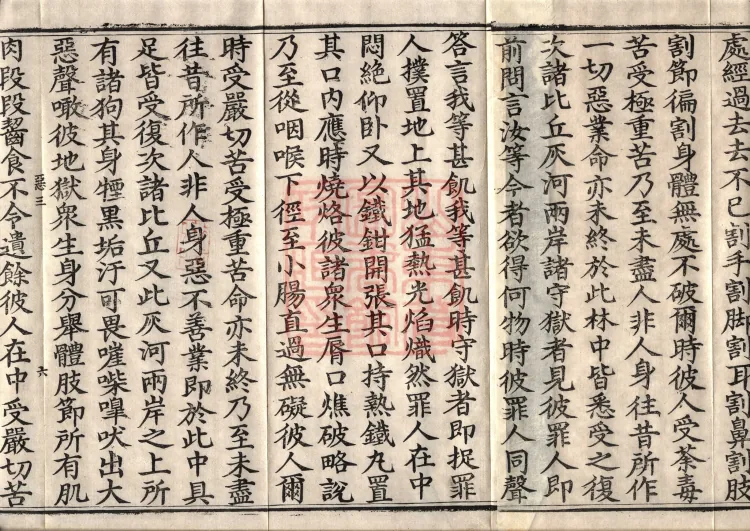 處經過去去不已割手割脚割耳割鼻割肢
割節徧割身體無處不破爾時彼人受荼毒
苦受極重苦乃至未盡人非人身往昔所作
一切惡業命亦未終於此林中皆悉受之復
次諸比丘灰河兩岸諸守獄者見彼罪人即
前問言汝等今者欲得何物時彼罪人同聲
答言我等甚飢我等甚飢時守獄者即捉罪
人撲置地上其地猛熱光焰熾然罪人在中
悶絶仰卧又以鐵鉗開張其口持熱鐵丸置
其口内應時燒烙彼諸衆生脣口燋破略説
乃至從咽喉下徑至小腸直過無礙彼人爾
時受嚴切苦受極重苦命亦未終乃至未盡
往昔所作人非人身惡不善業即於此中具
足皆受復次諸比丘又此灰河兩岸之上所
有諸狗其身㹥黒垢汙可畏嘊喍嘷吠出大
惡聲噉彼地獄衆生身分舉體肢節所有肌
惡三
六
肉段段齧食不令遺餘彼人在中受嚴切苦